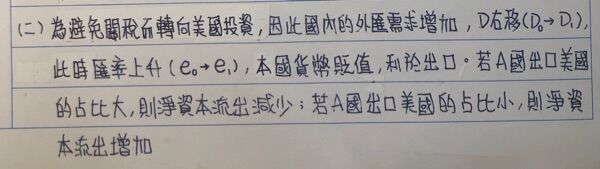 (二) 為避免關稅而轉向美國投資，因此國內的外匯需求增加，D右移(D₀→D₁)，
此時匯率上升(e₀→e₁)，本國貨幣貶值，利於出口。若A國出口美國
的占比大，則淨資本流出減少；若A國出口美國的占比小，則淨資
本流出增加